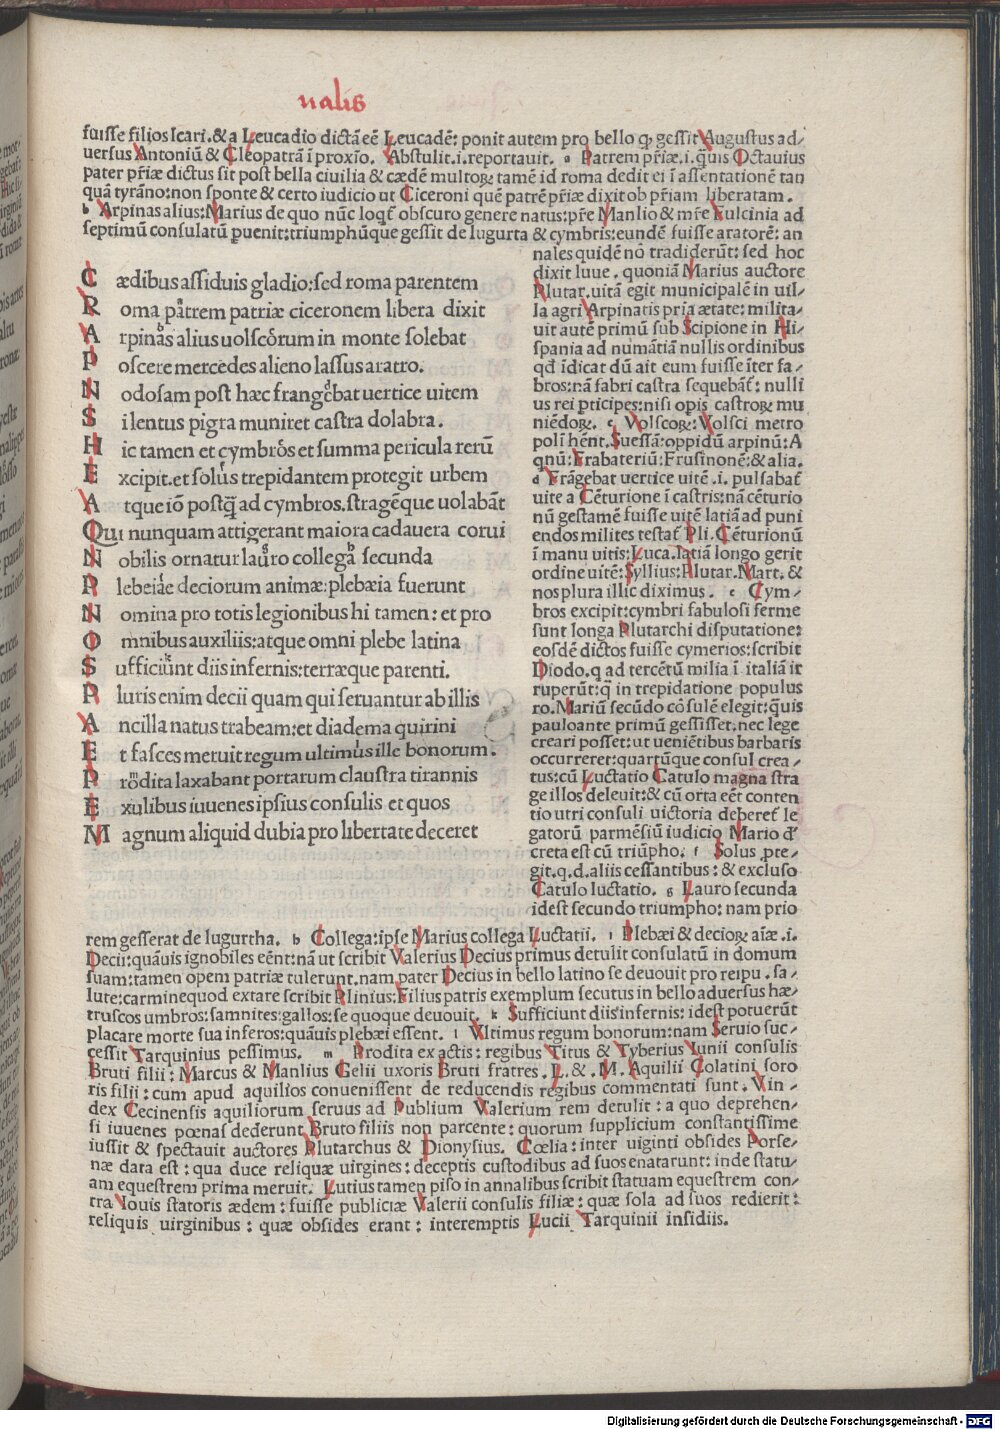 nalis
fuisse filios Icari.& a Leucadio dictā eē Leucadē: ponit autem pro bello ꝙ gessit Augustus ad/
uersus Antoniū & Cleopatrā ī proxīo. Abstulit.i.reportauit. a Patrem pr̄iæ.i.q̄uis Octauius
pater pr̄iæ dictus sit post bella ciuilia & cædē multoꝝ tamē id roma dedit ei ī assentationē tan
quā tyrāno:non sponte & certo iudicio ut Ciceroni quē patrē pr̄iæ dixit ob pr̄iam liberatam.
b Arpinas alius:Marius de quo nūc loqt̄ obscuro genere natus:pr̄e Manlio & mr̄e Fulcinia ad
septimū consulatū puenit:triumphūque gessit de Iugurta & cymbris:eundē fuisse aratorē: an
nales quidē nō tradiderūt: sed hoc
dixit Iuue. quoniā Marius auctore
Plutar.uitā egit municipalē in uil/
la agri Arpinatis pria ætate: milita/
uit autē primū sub Scipione in Hi/
spania ad numātiā nullis ordinibus
qd̄ īdicat dū ait eum fuisse īter fa/
bros:nā fabri castra sequebāt̄: nulli
us rei pticipes:nisi opis castroꝝ mu
niēdoꝝ. c Volscoꝝ: Volsci metro
polī hēnt.Suessā:oppidū arpinū:A
qnū:Frabateriū:Frusinonē:& alia.
d Frāgebat uertice uitē .i. pulsabat̄
uite a Cēturione ī castris:nā cēturio
nū gestamē fuisse uitē latiā ad puni
endos milites testat̄ Pli.Cēturionū
ī manu uitis:Luca.latiā longo gerit
ordine uitē:Syllius:Plutar.Mart. &
nos plura illic diximus. e Cym/
bros excipit:cymbri fabulosi ferme
sunt longa Plutarchi disputatione:
eosdē dictos fuisse cymerios:scribit
Diodo.q ad tercētū milia ī italiā it
ruperūt:q̄ in trepidatione populus
ro.Mariū secūdo cōsulē elegit:q̄uis
pauloante primū gessisset.nec lege
creari posset:ut ueniētibus barbaris
occurreret:quartūque consul crea/
tus:cū Luctatio Catulo magna stra
ge illos deleuit:& cū orta eēt conten
tio utri consuli uictoria deberet̄ le
gatorū parmēsiū iudicio Mario d̄
creta est cū triūpho. f Solus pte/
git.q.d.aliis cessantibus: & excluso
Catulo luctatio. g Lauro secunda
idest secundo triumpho: nam prio
C ædibus assiduis gladio:sed roma parentem
R oma patrem patriæ ciceronem libera dixit
A rpinas alius uolscorum in monte solebat
P oscere mercedes alieno lassus aratro.
N odosam post hæc frangebat uertice uitem
S i lentus pigra muniret castra dolabra.
H ic tamen et cymbros et summa pericula rerū
E xcipit.et solus trepidantem protegit urbem
A tque iō postq̄ ad cymbros.stragēque uolabāt
Qui nunquam attigerant maiora cadauera corui
N obilis ornatur lauro collega secunda
P lebeiæ deciorum animæ:plebæia fuerunt
N omina pro totis legionibus hi tamen: et pro
O mnibus auxiliis:atque omni plebe latina
S ufficiunt diis infernis:terræque parenti.
P luris enim decii quam qui seruantur ab illis
A ncilla natus trabeam:et diadema quirini
E t fasces meruit regum ultimus ille bonorum.
P rodita laxabant portarum claustra tirannis
E xulibus iuuenes ipsius consulis et quos
M agnum aliquid dubia pro libertate deceret
rem gesserat de Iugurtha. h Collega:ipse Marius collega Luctatii. i Plebæi & decioꝝ aīæ.i.
Decii:quāuis ignobiles eēnt:nā ut scribit Valerius Decius primus detulit consulatū in domum
suam:tamen opem patriæ tulerunt.nam pater Decius in bello latino se deuouit pro reipu. sa/
lute:carmine quod extare scribit Plinius:Filius patris exemplum secutus in bello aduersus hæ/
truscos umbros:samnites:gallos:se quoque deuouit. k Sufficiunt diis infernis: idest potuerūt
placare morte sua inferos:quāuis plebæi essent. l Vltimus regum bonorum:nam Seruio suc/
cessit Tarquinius pessimus. m Prodita ex actis: regibus Titus & Tyberius Iunii consulis
Bruti filii: Marcus & Manlius Gelii uxoris Bruti fratres. L. & .M. Aquilii Colatini soro
ris filii: cum apud aquilios conuenissent de reducendis regibus commentati sunt. Vin/
dex Cecinensis aquiliorum seruus ad Publium Valerium rem detulit: a quo deprehen/
si iuuenes pœnas dederunt Bruto filiis non parcente: quorum supplicium constantissime
iussit & spectauit auctores Plutarchus & Dionysius. Cœlia: inter uiginti obsides Porse/
næ dara est: qua duce reliquæ uirgines: deceptis custodibus ad suos enatarunt: inde statu/
am equestrem prima meruit. Lutius tamen piso in annalibus scribit statuam equestrem con/
tra Iouis statoris ædem: fuisse publiciæ Valerii consulis filiæ: quæ sola ad suos redierit:
reliquis uirginibus: quæ obsides erant: interemptis Lucii Tarquinii insidiis.
Digitalisierung gefördert durch die Deutsche Forschungsgemeinschaft - DFG